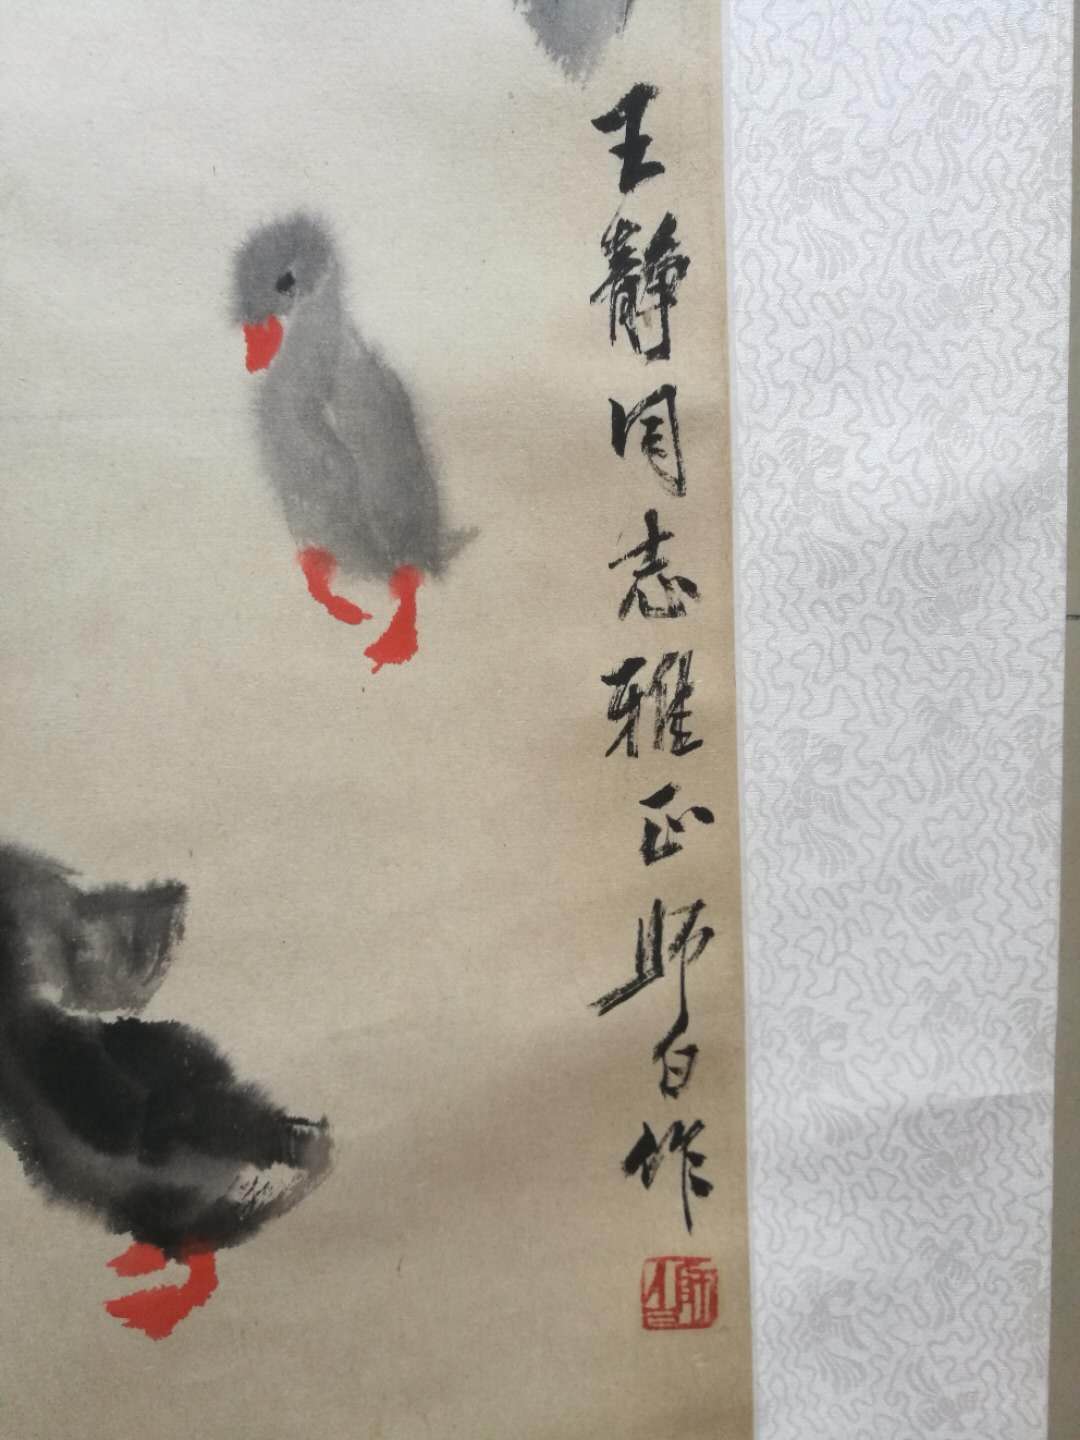 王静同志雅正师白作
师白